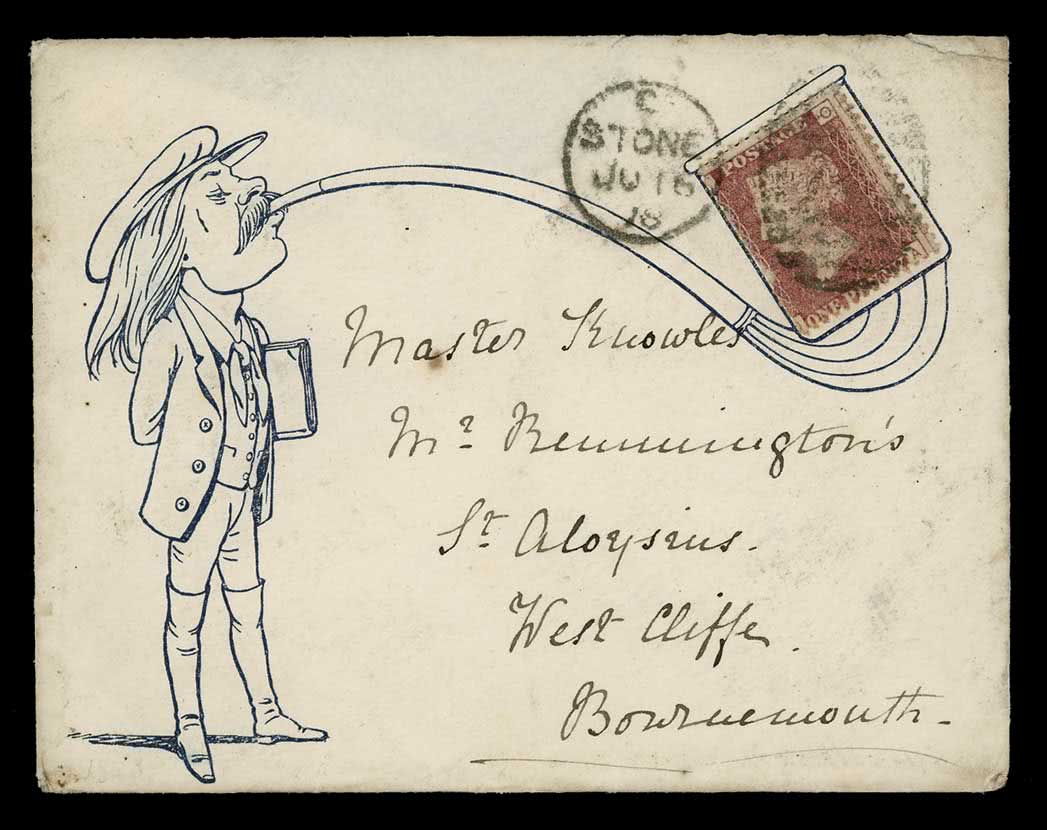 C
STONE
JU 16
18
O
POSTAGE
ONE PENNY
A
Master Knowles
Mr. Remmington's
St Aloysius.
West Cliffe.
Bournemouth-